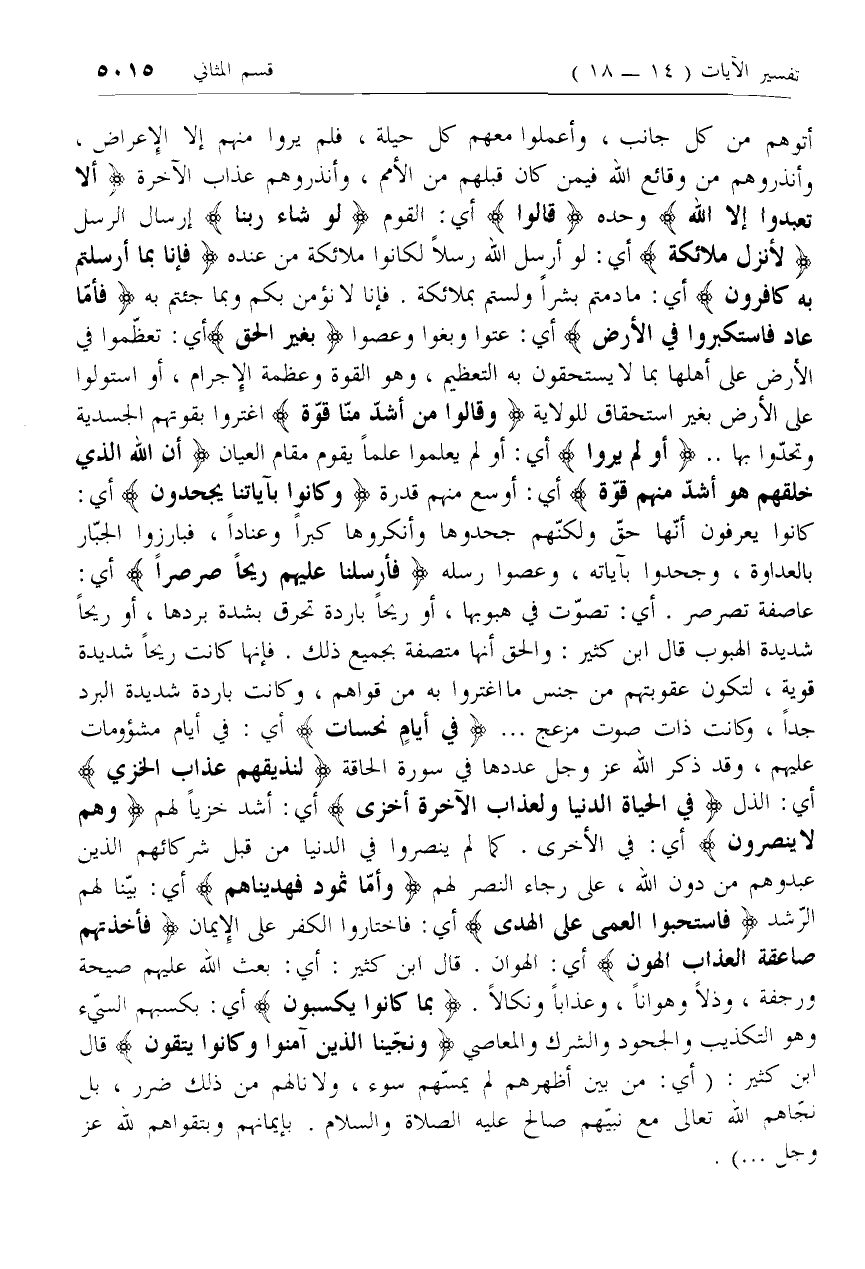 تفسير الآيات ( ١٤ — ١٨ ) قسم المثاني ٥٠١٥
أتوهم من كل جانب ، وأعملوا معهم كل حيلة ، فلم يروا منهم إلا الإعراض ،
وأنذروهم من وقائع الله فيمن كان قبلهم من الأمم ، وأنذروهم عذاب الآخرة ﴿ ألا
تعبدوا إلا الله ﴾ وحده ﴿ قالوا ﴾ أي: القوم ﴿ لو شاء ربنا ﴾ إرسال الرسل
﴿ لأنزل ملائكة ﴾ أي: لو أرسل الله رسلاً لكانوا ملائكة من عنده ﴿ فإنا بما أرسلتم
به كافرون ﴾ أي: مادمتم بشراً ولستم بملائكة . فإنا لا نؤمن بكم وبما جئتم به ﴿ فأمّا
عاد فاستكبروا في الأرض ﴾ أي: عتوا وبغوا وعصوا ﴿ بغير الحق ﴾أي: تعظّموا في
الأرض على أهلها بما لا يستحقون به التعظيم ، وهو القوة وعظمة الإجرام ، أو استولوا
على الأرض بغير استحقاق للولاية ﴿ وقالوا من أشدّ منّا قوّة ﴾ اغتروا بقوتهم الجسدية
وتحدّوا بها .. ﴿ أو لم يروا ﴾ أي: أو لم يعلموا علماً يقوم مقام العيان ﴿ أن الله الذي
خلقهم هو أشدّ منهم قوّة ﴾ أي: أوسع منهم قدرة ﴿ وكانوا بآياتنا يجحدون ﴾ أي:
كانوا يعرفون أنّها حقّ ولكنّهم جحدوها وأنكروها كبراً وعناداً ، فبارزوا الجبّار
بالعداوة ، وجحدوا بآياته ، وعصوا رسله ﴿ فأرسلنا عليهم ريحاً صرصراً ﴾ أي:
عاصفة تصرصر . أي: تصوّت في هبوبها ، أو ريحاً باردة تحرق بشدة بردها ، أو ريحاً
شديدة الهبوب قال ابن كثير : والحق أنها متصفة بجميع ذلك . فإنها كانت ريحاً شديدة
قوية ، لتكون عقوبتهم من جنس مااغتروا به من قواهم ، وكانت باردة شديدة البرد
جداً ، وكانت ذات صوت مزعج ... ﴿ في أيامٍ نحسات ﴾ أي : في أيام مشؤومات
عليهم ، وقد ذكر الله عز وجل عددها في سورة الحاقة ﴿ لنذيقهم عذاب الخزي ﴾
أي: الذل ﴿ في الحياة الدنيا ولعذاب الآخرة أخزى ﴾ أي: أشد خزياً لهم ﴿ وهم
لاينصرون ﴾ أي: في الأخرى . كما لم ينصروا في الدنيا من قبل شركائهم الذين
عبدوهم من دون الله ، على رجاء النصر لهم ﴿ وأمّا ثمود فهديناهم ﴾ أي: بيّنا لهم
الرّشد ﴿ فاستحبوا العمى على الهدى ﴾ أي: فاختاروا الكفر على الإيمان ﴿ فأخذتهم
صاعقة العذاب الهون ﴾ أي: الهوان . قال ابن كثير : أي: بعث الله عليهم صيحة
ورجفة ، وذلاً وهواناً ، وعذاباً ونكالاً . ﴿ بما كانوا يكسبون ﴾ أي: بكسبهم السيّء
وهو التكذيب والجحود والشرك والمعاصي ﴿ ونجّينا الذين آمنوا وكانوا يتقون ﴾ قال
ابن كثير : ( أي: من بين أظهرهم لم يمسّهم سوء ، ولانالهم من ذلك ضرر ، بل
نجّاهم الله تعالى مع نبيّهم صالح عليه الصلاة والسلام . بإيمانهم وبتقواهم لله عز
وجل ...) .